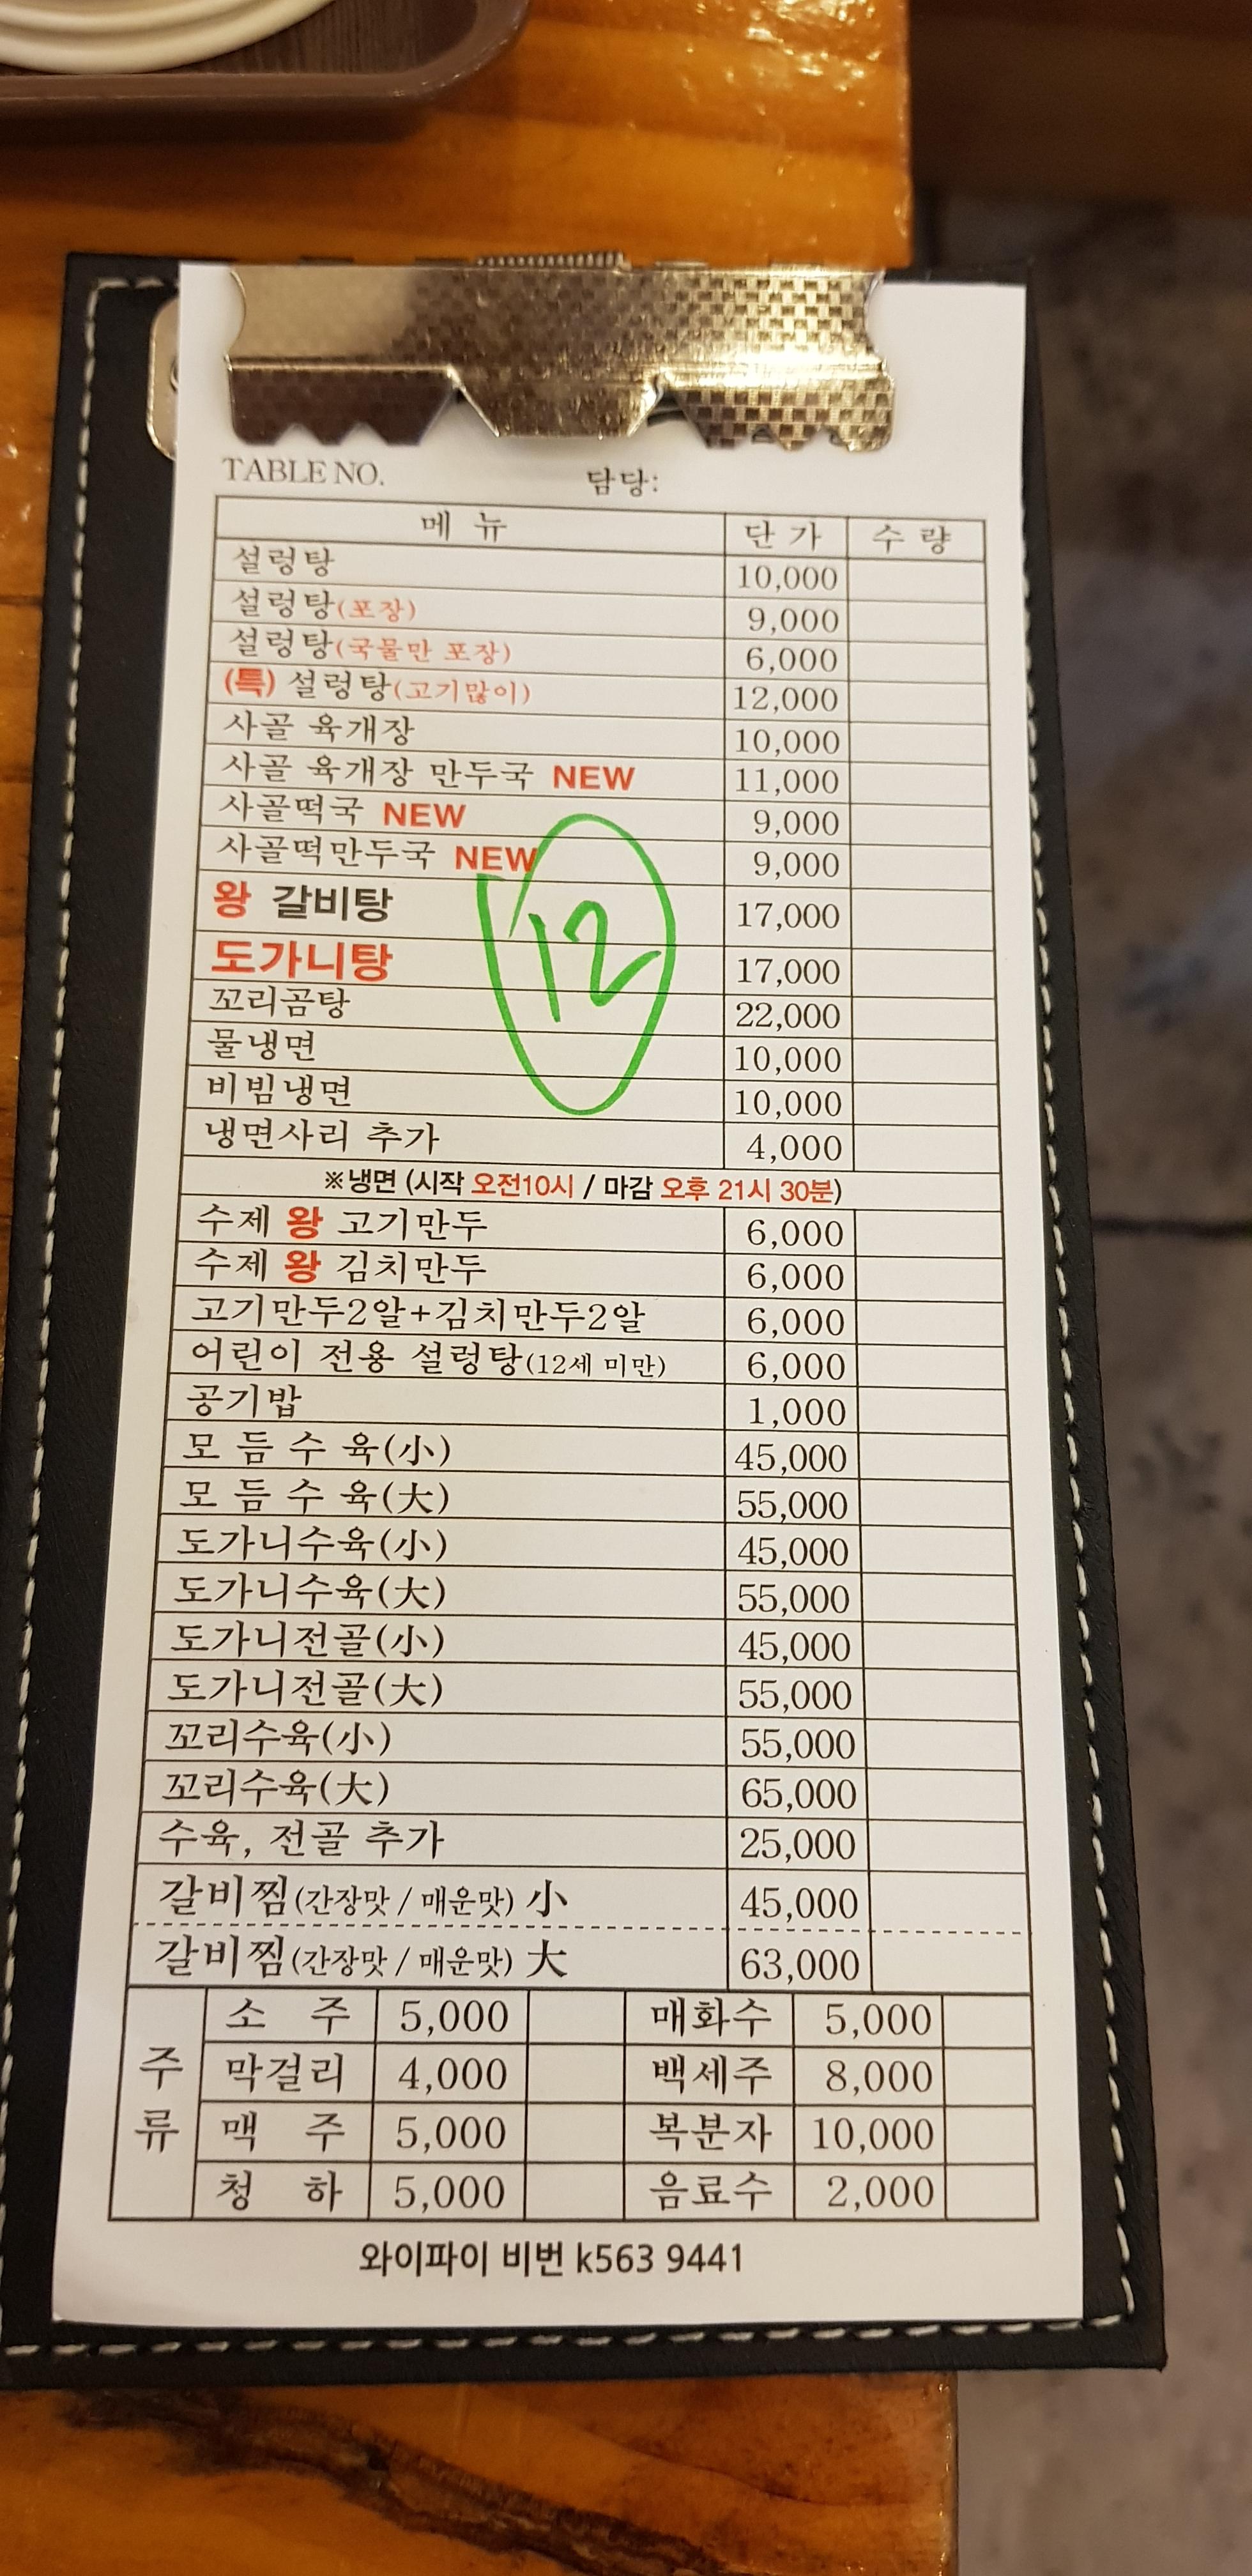 TABLE NO. 담당:
메 뉴 단 가 수 량
설렁탕 10,000
설렁탕(포장) 9,000
설렁탕(국물만 포장) 6,000
(특) 설렁탕(고기많이) 12,000
사골 육개장 10,000
사골 육개장 만두국 NEW 11,000
사골떡국 NEW 9,000
사골떡만두국 NEW 9,000
왕 갈비탕 17,000
12
도가니탕 17,000
꼬리곰탕 22,000
물냉면 10,000
비빔냉면 10,000
냉면사리 추가 4,000
※냉면 (시작 오전10시 / 마감 오후 21시 30분)
수제 왕 고기만두 6,000
수제 왕 김치만두 6,000
고기만두2알+김치만두2알 6,000
어린이 전용 설렁탕(12세 미만) 6,000
공기밥 1,000
모 듬 수 육(小) 45,000
모 듬 수 육(大) 55,000
도가니수육(小) 45,000
도가니수육(大) 55,000
도가니전골(小) 45,000
도가니전골(大) 55,000
꼬리수육(小) 55,000
꼬리수육(大) 65,000
수육, 전골 추가 25,000
갈비찜(간장맛 / 매운맛) 小 45,000
갈비찜(간장맛 / 매운맛) 大 63,000
주류
소 주 5,000 매화수 5,000
막걸리 4,000 백세주 8,000
맥 주 5,000 복분자 10,000
청 하 5,000 음료수 2,000
와이파이 비번 k563 9441